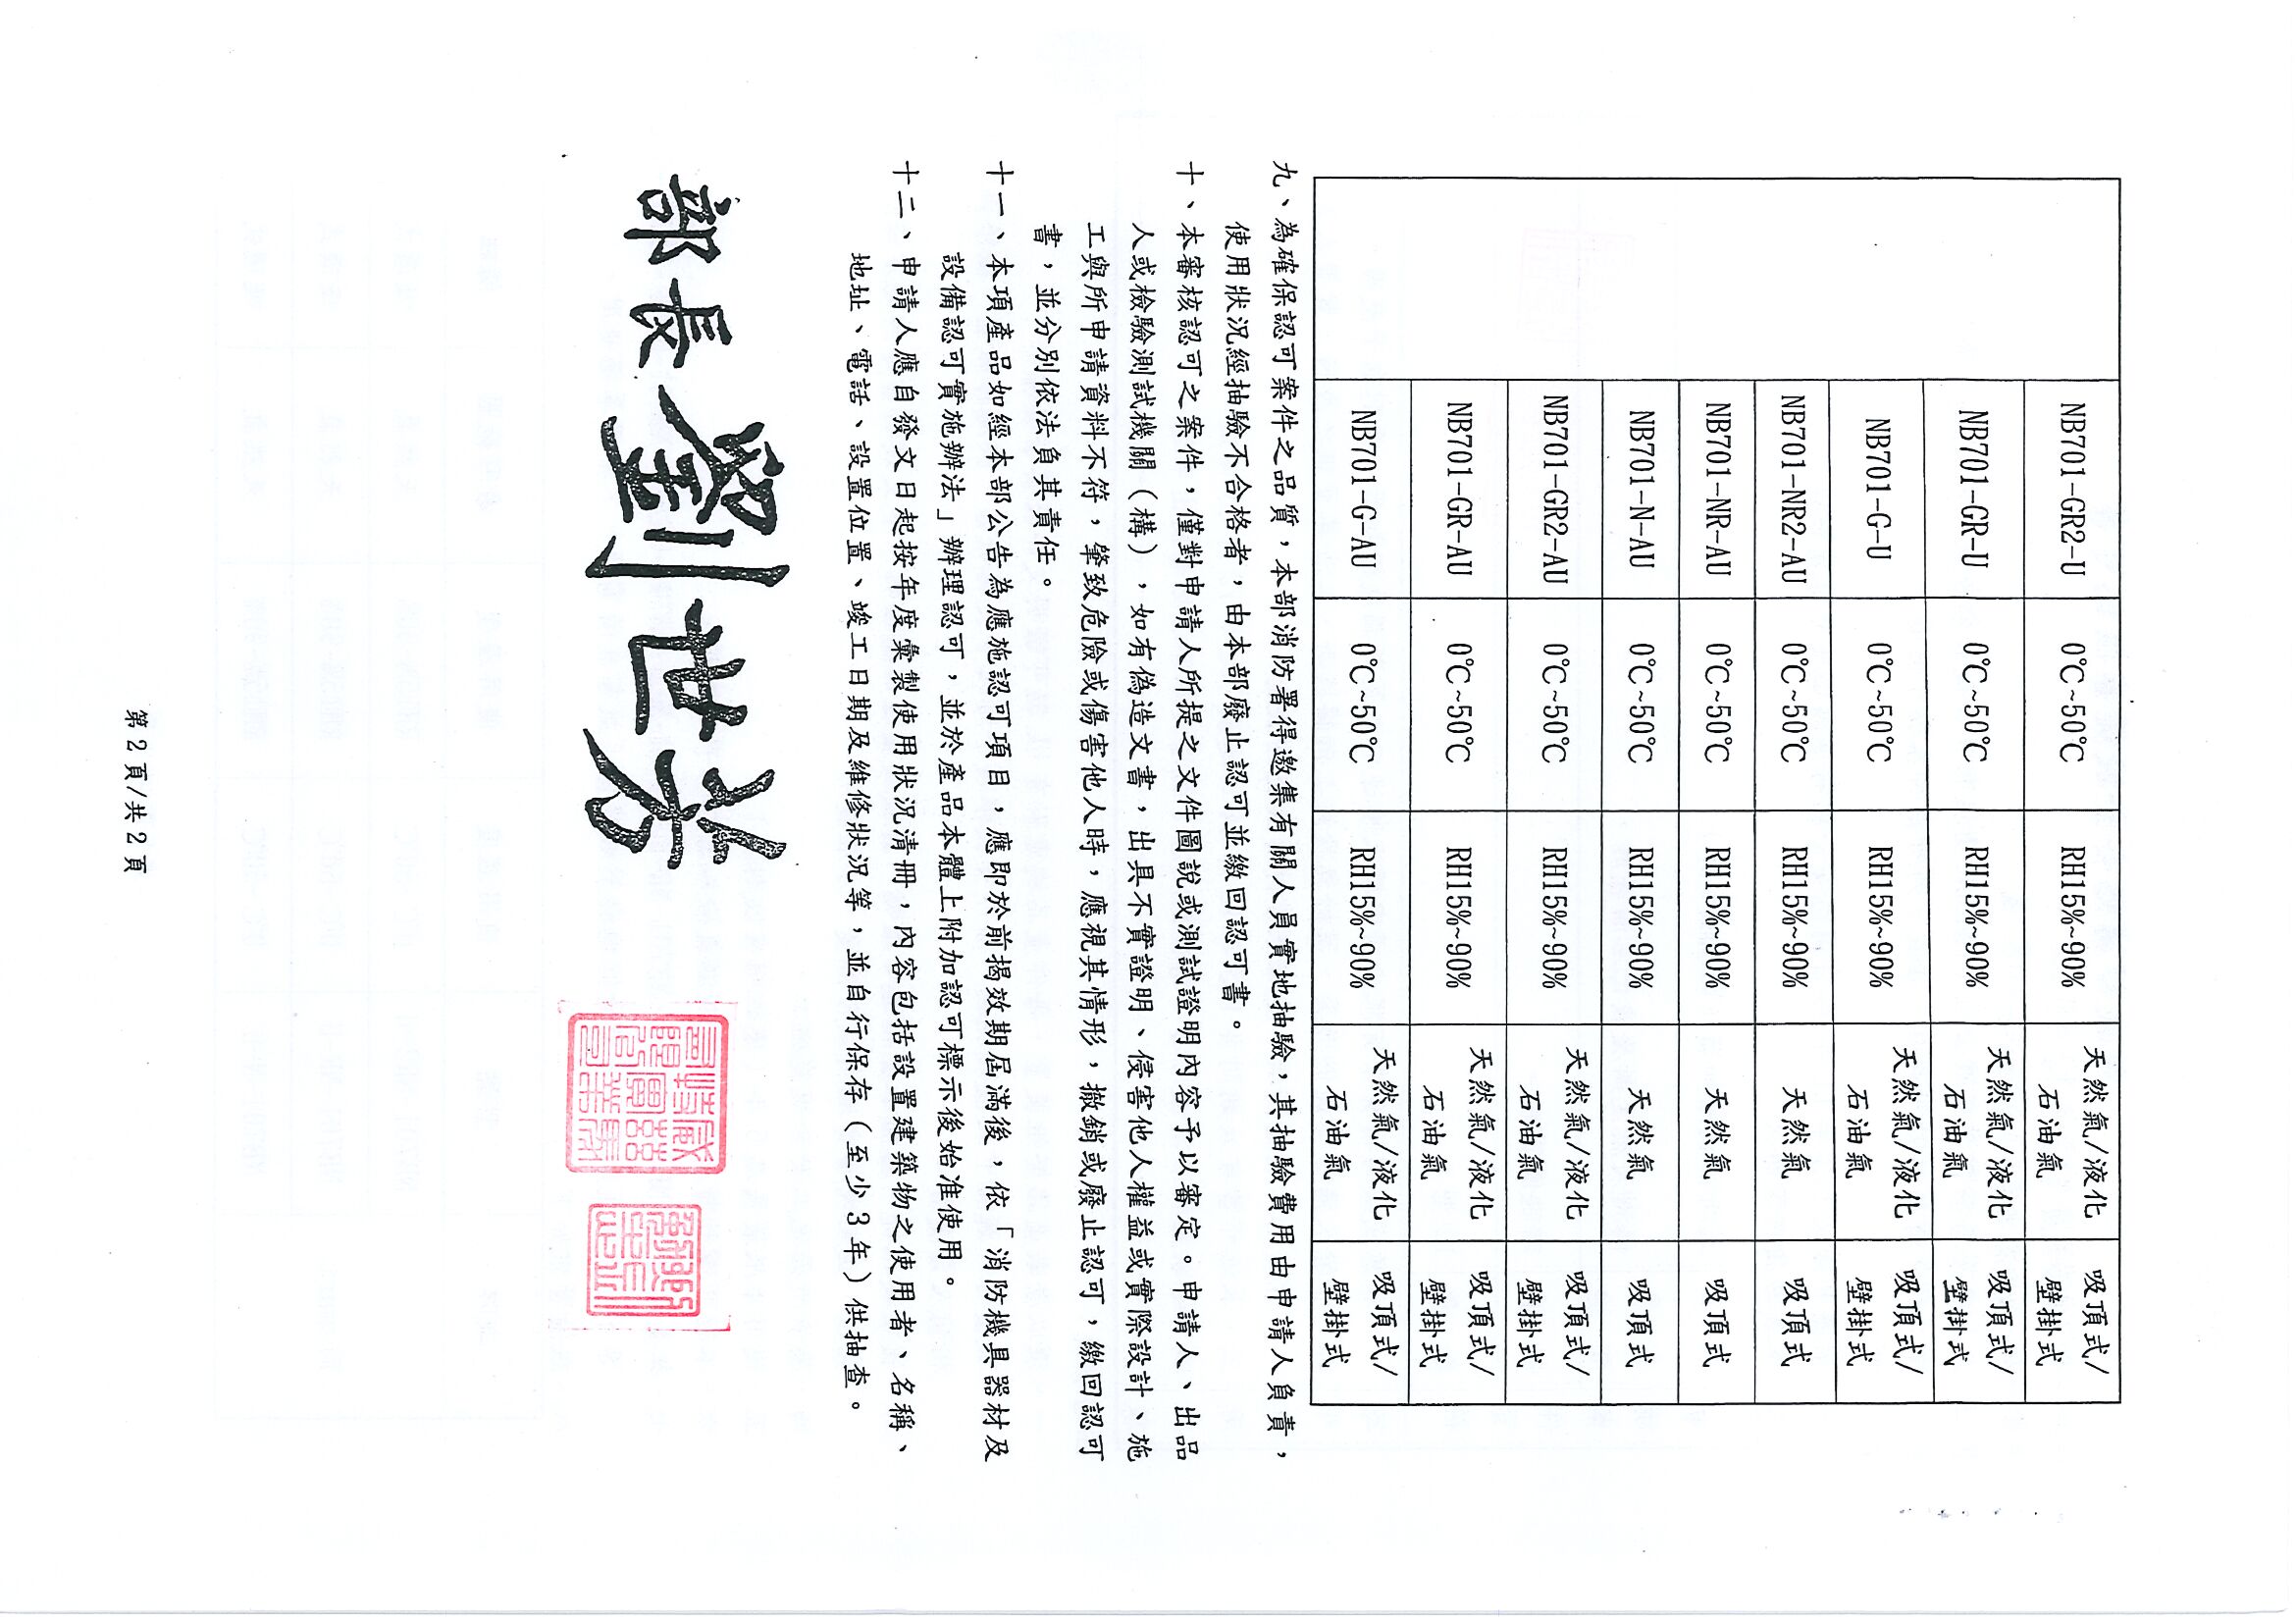 NB701-GR2-U 0℃~50℃ RH15%~90% 天然氣/液化石油氣 吸頂式/壁掛式
NB701-GR-U 0℃~50℃ RH15%~90% 天然氣/液化石油氣 吸頂式/壁掛式
NB701-G-U 0℃~50℃ RH15%~90% 天然氣/液化石油氣 吸頂式/壁掛式
NB701-NR2-AU 0℃~50℃ RH15%~90% 天然氣 吸頂式
NB701-NR-AU 0℃~50℃ RH15%~90% 天然氣 吸頂式
NB701-N-AU 0℃~50℃ RH15%~90% 天然氣 吸頂式
NB701-GR2-AU 0℃~50℃ RH15%~90% 天然氣/液化石油氣 吸頂式/壁掛式
NB701-GR-AU 0℃~50℃ RH15%~90% 天然氣/液化石油氣 吸頂式/壁掛式
NB701-G-AU 0℃~50℃ RH15%~90% 天然氣/液化石油氣 吸頂式/壁掛式
九、為確保認可案件之品質，本部消防署得邀集有關人員實地抽驗，其抽驗費用由申請人負責，
使用狀況經抽驗不合格者，由本部廢止認可並繳回認可書。
十、本審核認可之案件，僅對申請人所提之文件圖說或測試證明內容予以審定。申請人、出品
人或檢驗測試機關（構），如有偽造文書，出具不實證明、侵害他人權益或實際設計、施
工與所申請資料不符，肇致危險或傷害他人時，應視其情形，撤銷或廢止認可，繳回認可
書，並分別依法負其責任。
十一、本項產品如經本部公告為應施認可項目，應即於前揭效期屆滿後，依「消防機具器材及
設備認可實施辦法」辦理認可，並於產品本體上附加認可標示後始准使用。
十二、申請人應自發文日起按年度彙製使用狀況清冊，內容包括設置建築物之使用者、名稱、
地址、電話、設置位置、竣工日期及維修狀況等，並自行保存（至少3年）供抽查。
部長劉世芳
第2頁/共2頁